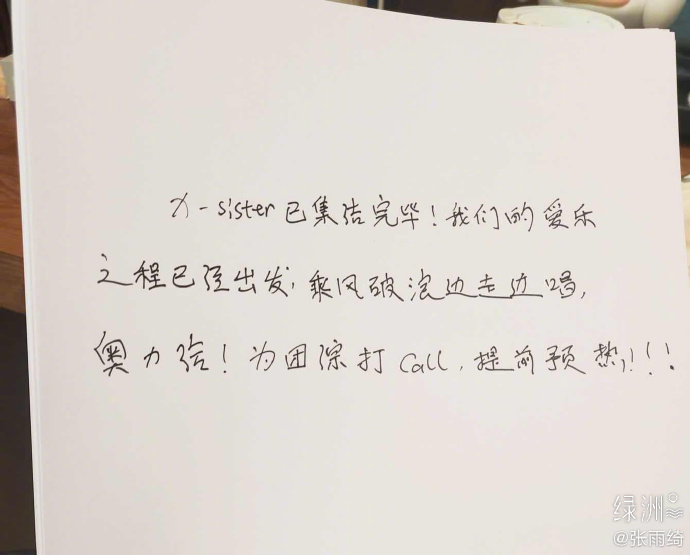 X-sister已集结完毕！我们的爱乐
之程已经出发，乘风破浪边走边唱，
奥力给！为团综打call，提前预热！！！
绿洲
@张雨绮